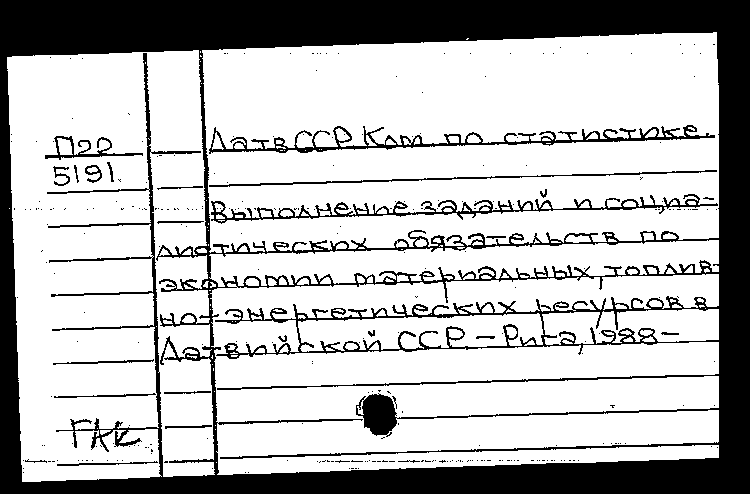 П22
5191.
ЛатвССР Ком по статистике.
Выполнение заданий и социа-
листических обязательств по
экономии материальных, топлив-
но-энергетических ресурсов в
Латвийской ССР. – Рига, 1988–
ГАК